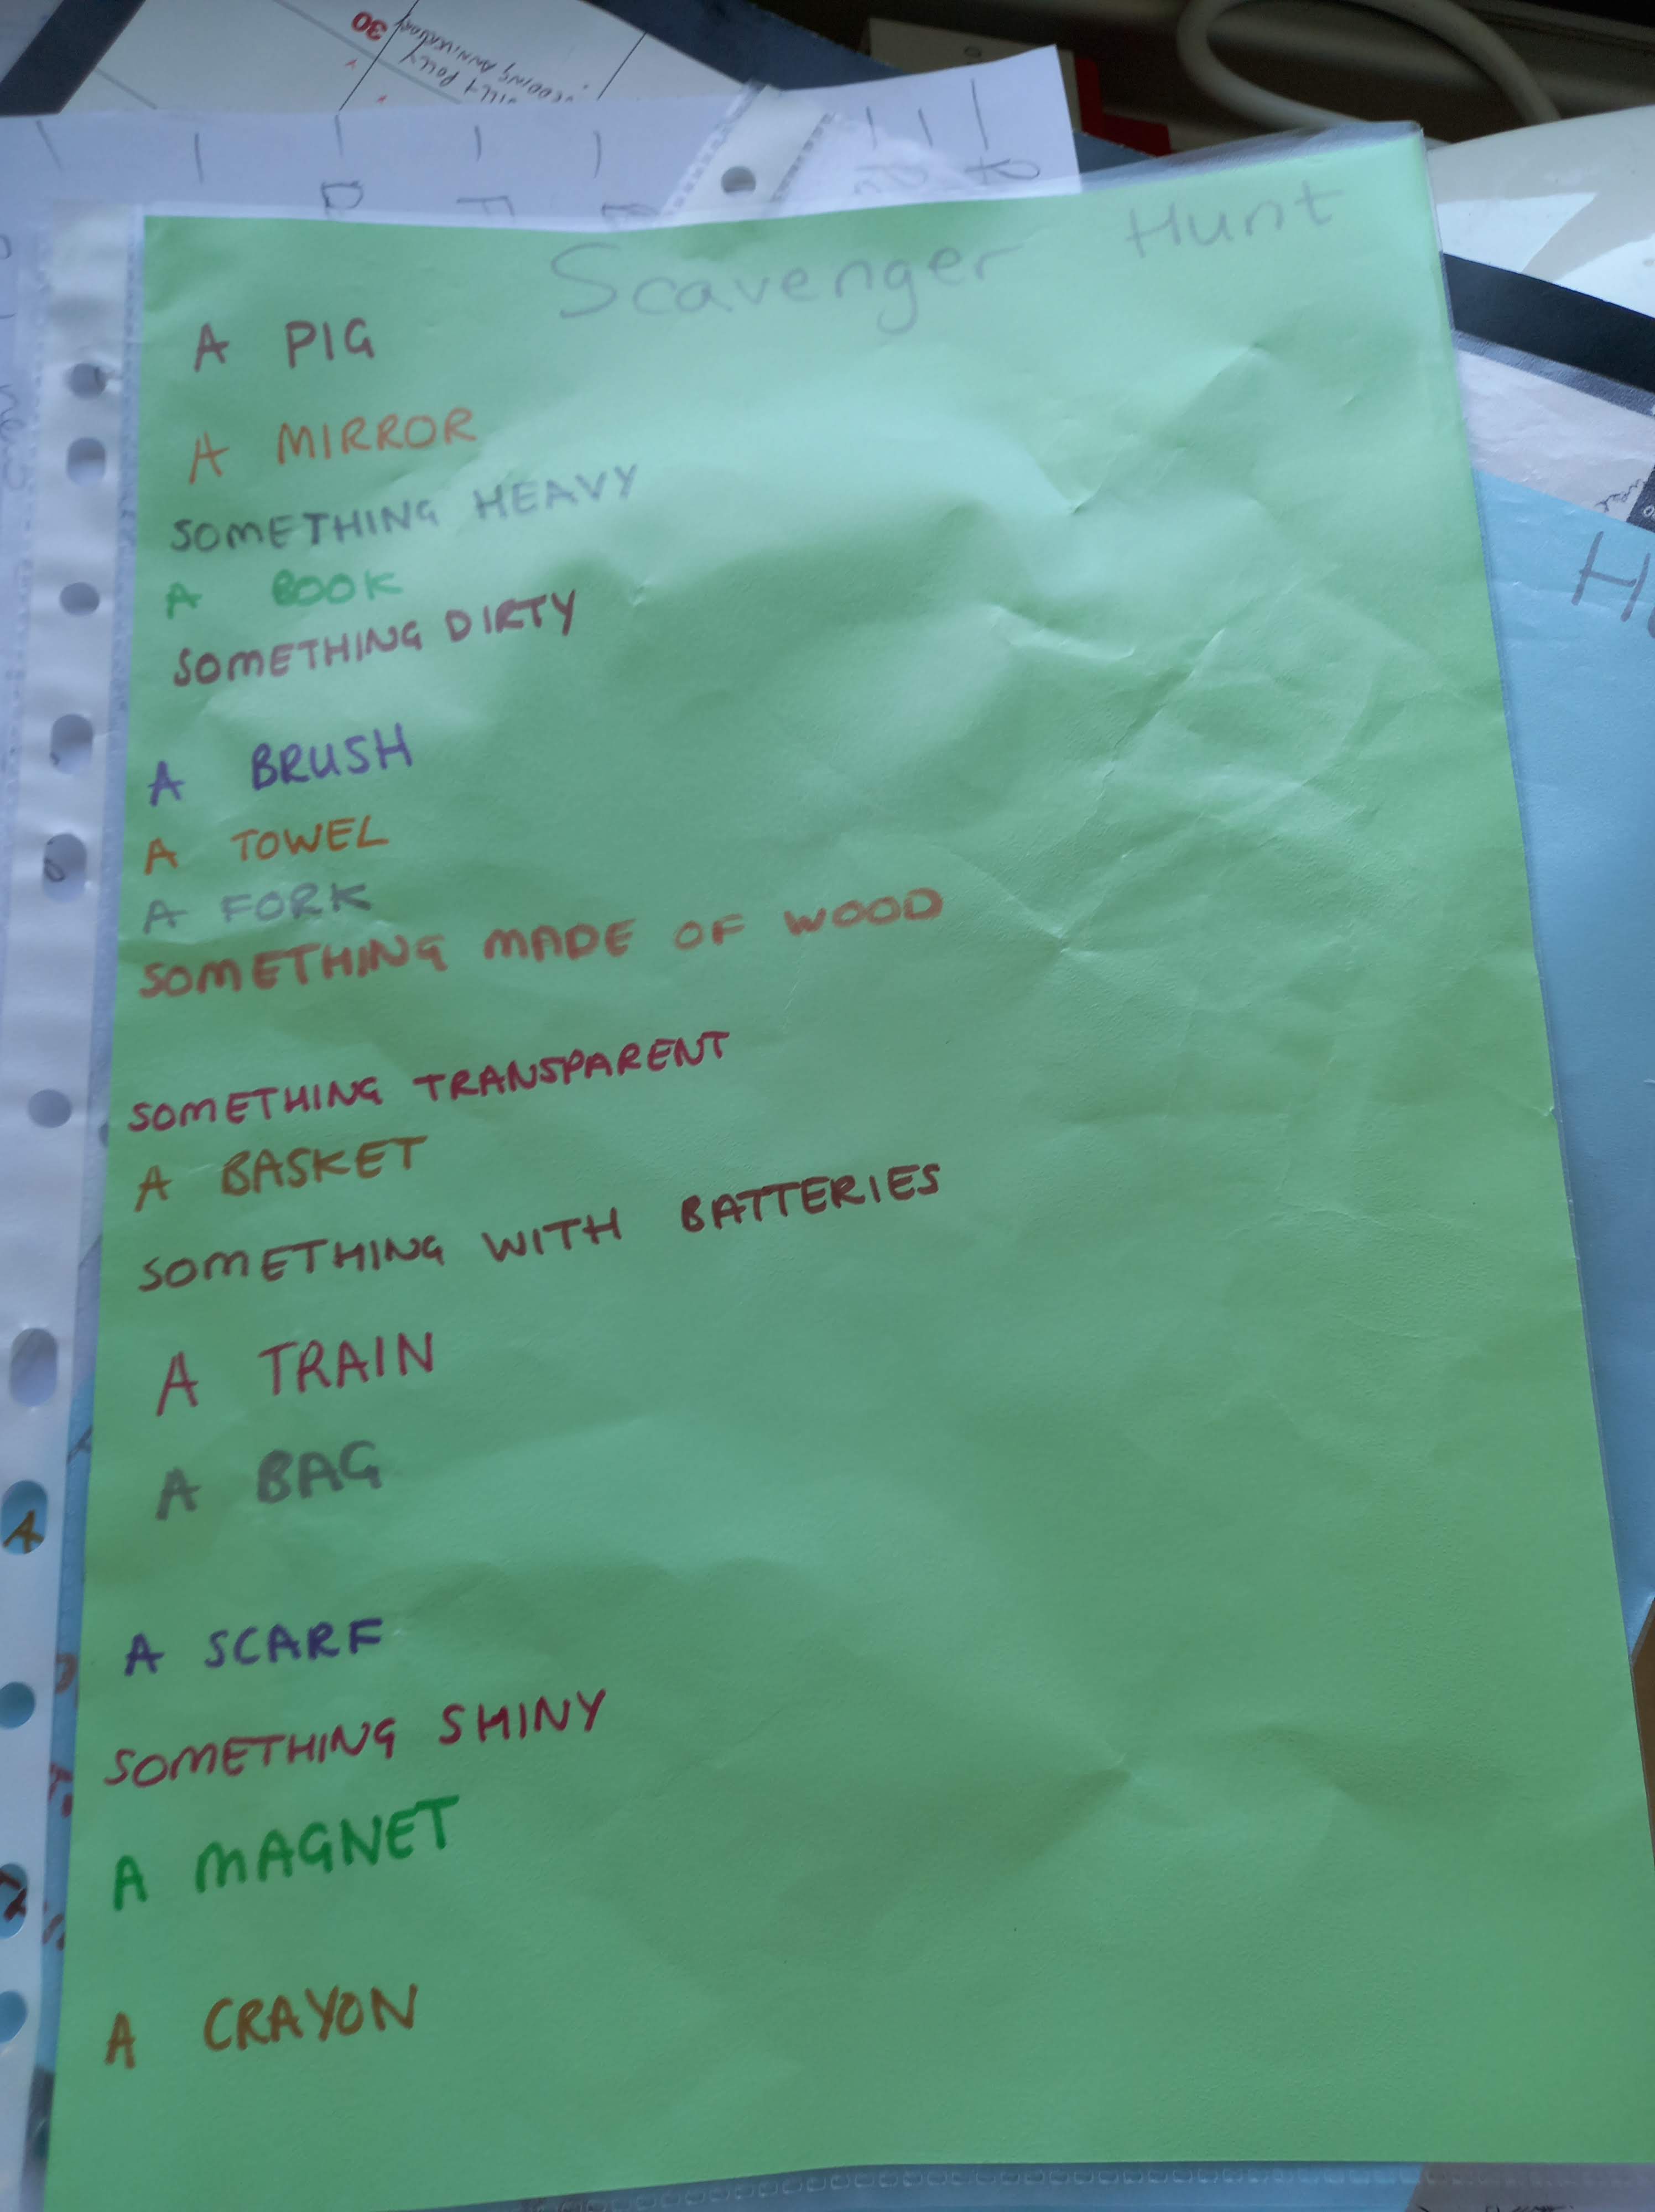 30
WEDDING ANNIVERSARY
POLLY
Scavenger Hunt
A PIG
A MIRROR
SOMETHING HEAVY
A BOOK
SOMETHING DIRTY
A BRUSH
A TOWEL
A FORK
SOMETHING MADE OF WOOD
SOMETHING TRANSPARENT
A BASKET
SOMETHING WITH BATTERIES
A TRAIN
A BAG
A SCARF
SOMETHING SHINY
A MAGNET
A CRAYON